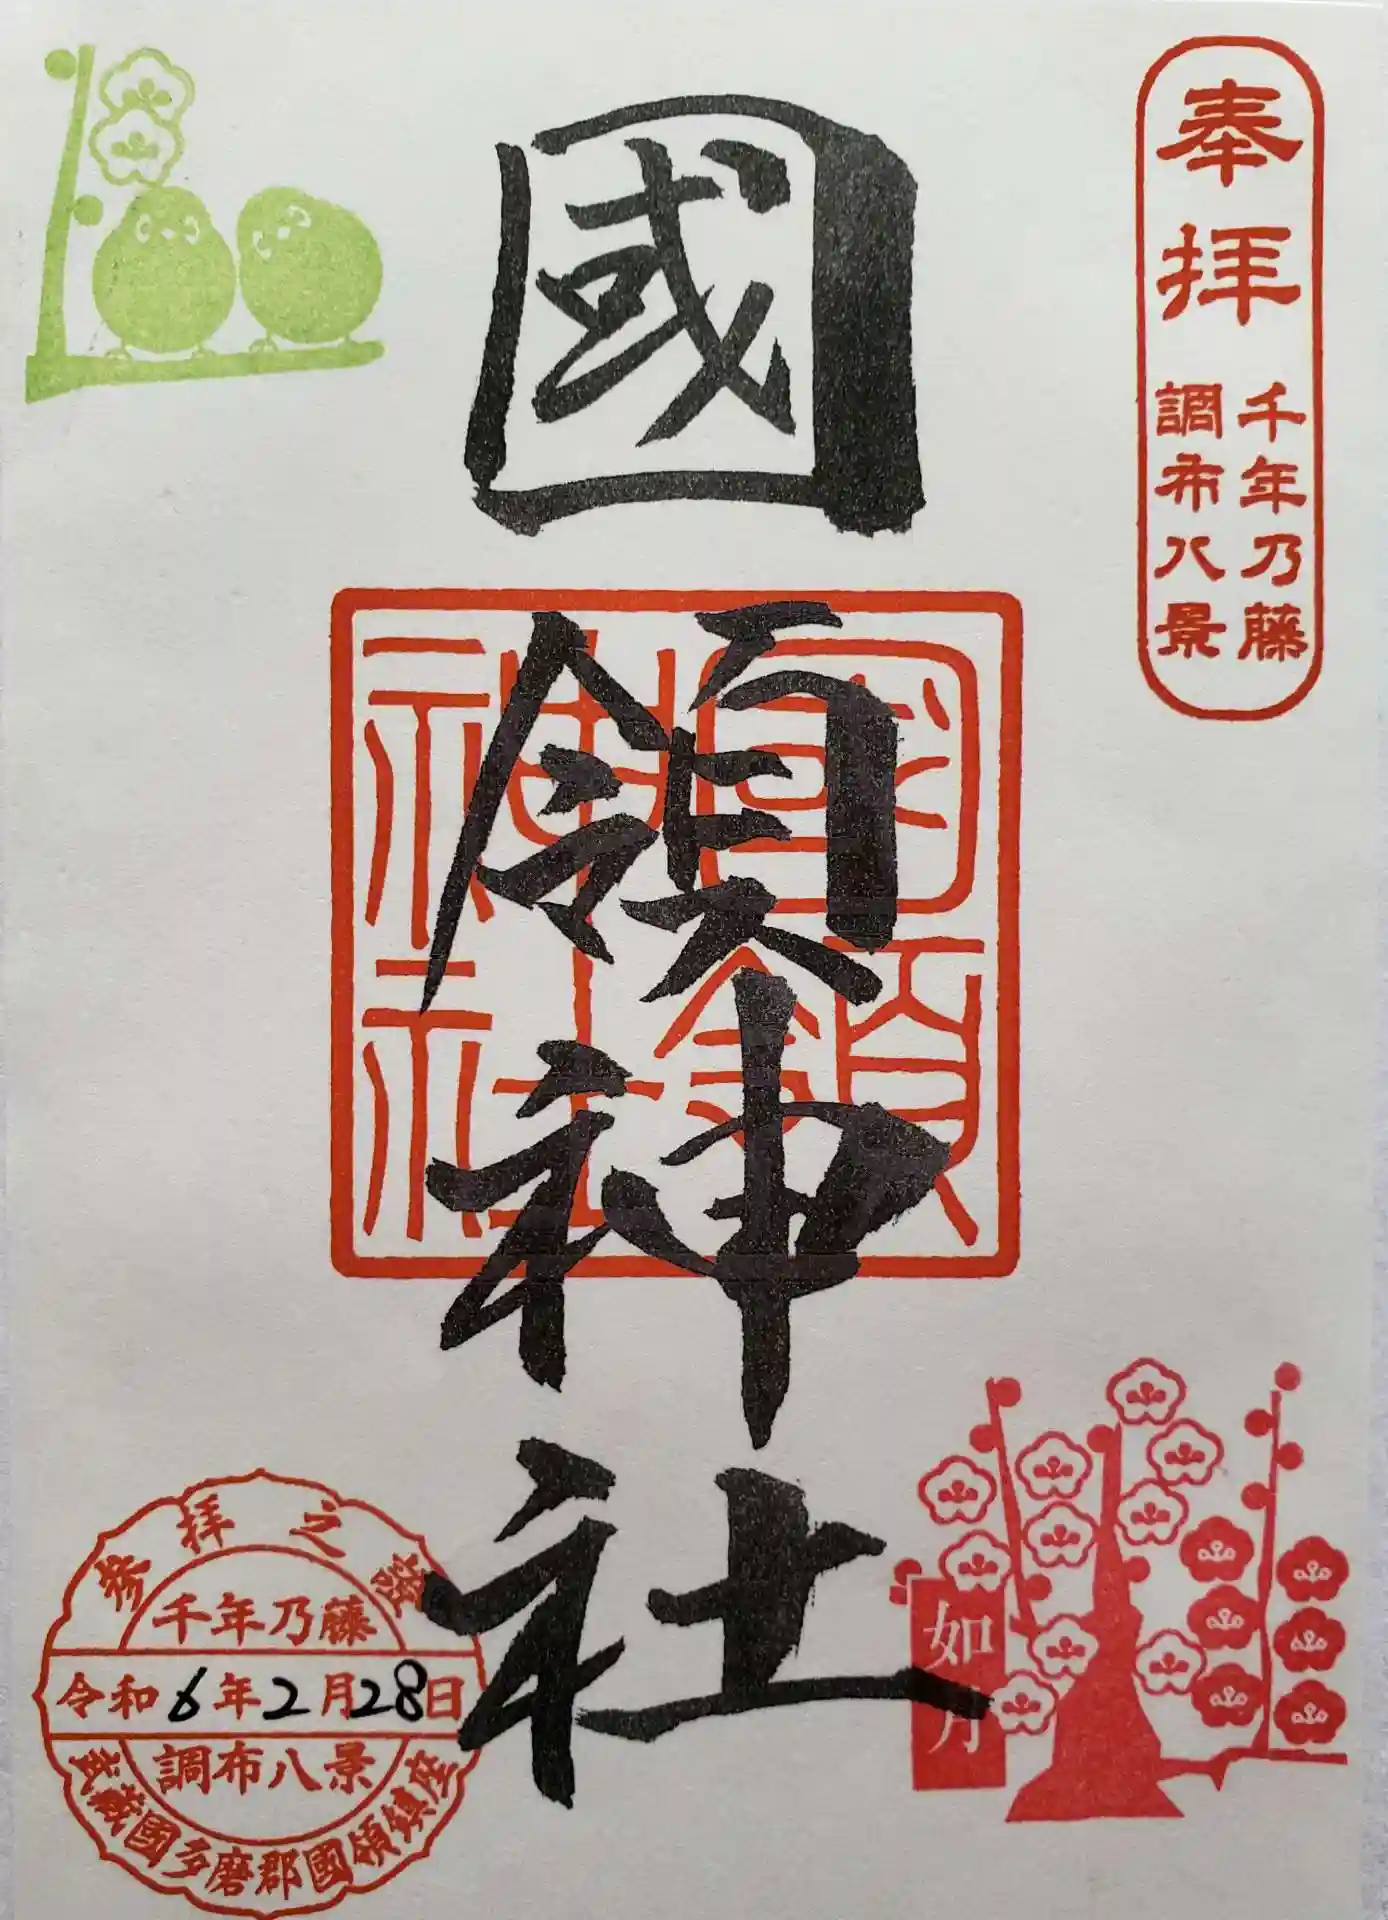 奉拝
千年乃藤
調布八景
國領神社
國領
神社
如月
参拝之證
千年乃藤
令和6年2月28日
調布八景
武蔵國多磨郡國領鎮座